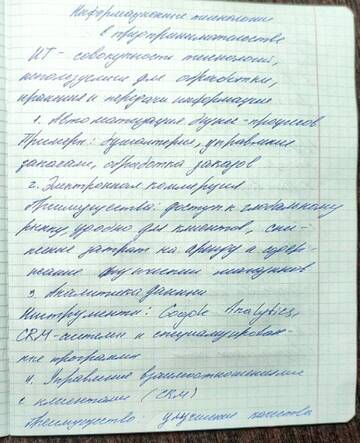 Информационные технологии
в предпринимательстве
ИТ - совокупность технологий,
используемых для обработки,
хранения и передачи информации
1. Автоматизация бизнес-процессов
Примеры: бухгалтерия, управление
запасами, обработка заказов
2. Электронная коммерция
Преимущества: доступ к глобальному
рынку, удобно для клиентов, сни-
жение затрат на аренду и содер-
жание физических магазинов
3. Аналитика данных
Инструменты: Google Analytics,
CRM-системы и специализирован-
ные программы
4. Управление взаимоотношениями
с клиентами (CRM)
Преимущество: улучшение качества